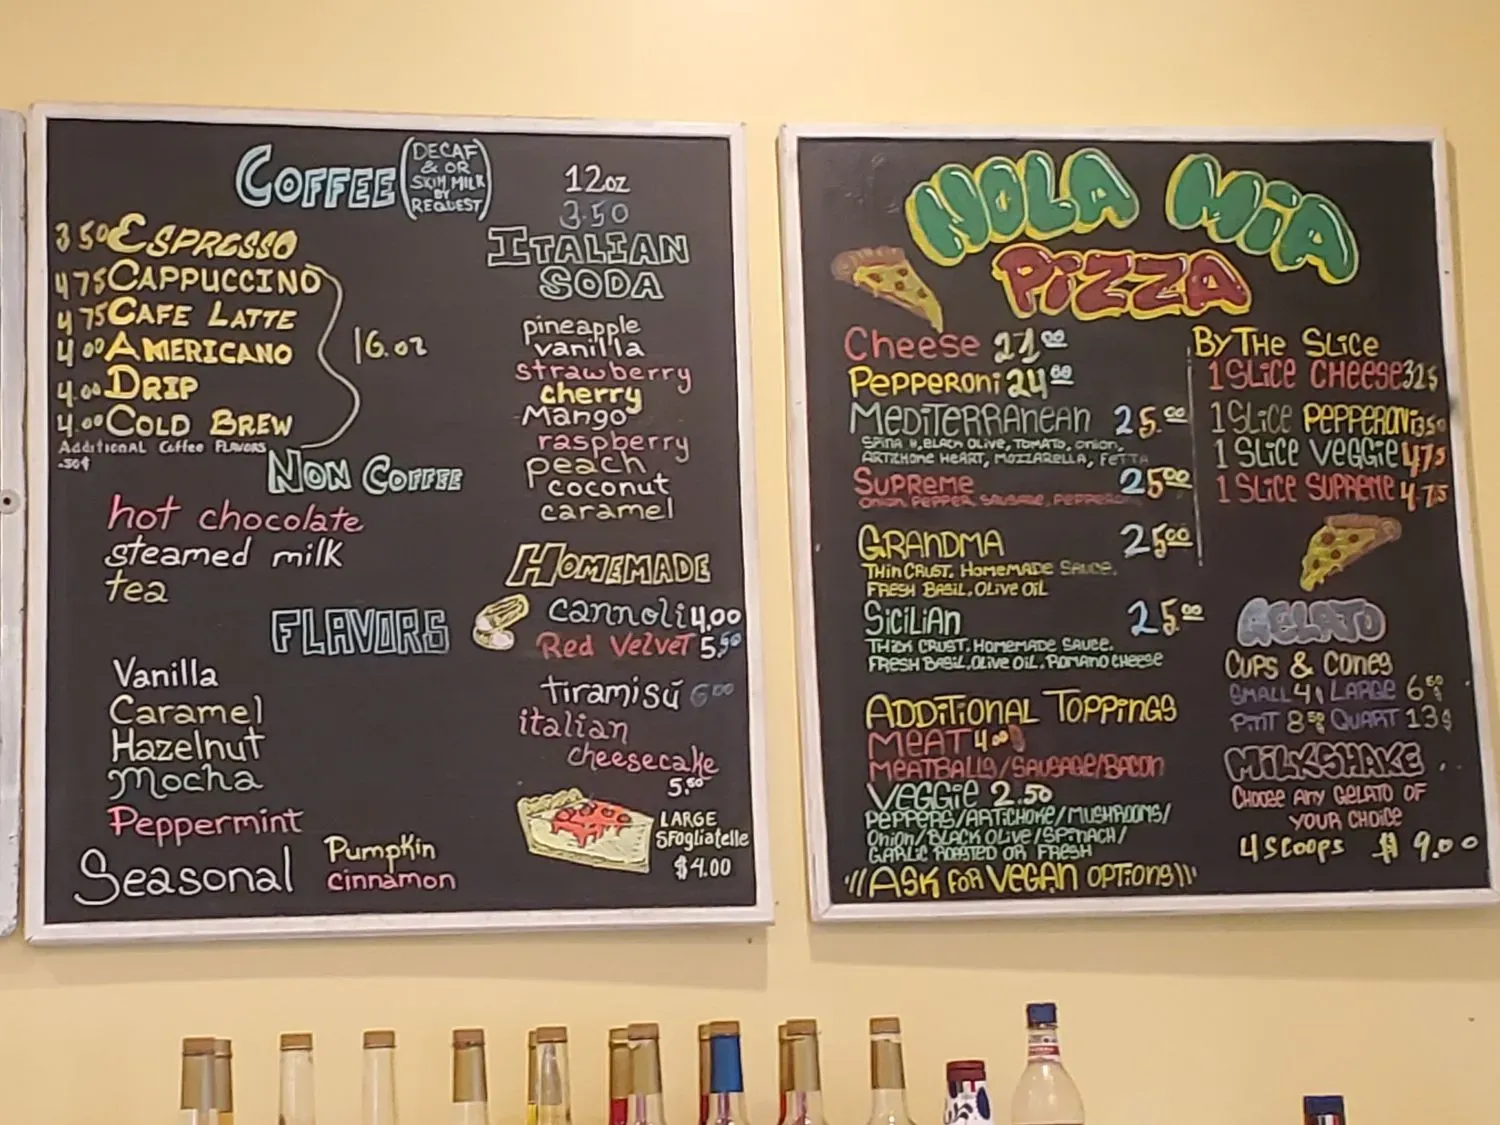 COFFEE
(DECAF
& OR
SKIM MILK
BY
REQUEST)
3 50 ESPRESSO
4 75 CAPPUCCINO
4 75 CAFE LATTE
4 00 AMERICANO
4.00 DRIP
4.00 COLD BREW
16.oz
Additional Coffee Flavors
.50¢
NON COFFEE
hot chocolate
steamed milk
tea
FLAVORS
Vanilla
Caramel
Hazelnut
Mocha
Peppermint
Seasonal
Pumpkin
cinnamon
12oz
3.50
ITALIAN
SODA
pineapple
vanilla
strawberry
cherry
Mango
raspberry
peach
coconut
caramel
HOMEMADE
cannoli 4.00
Red Velvet 5.50
tiramisú 6.00
italian
cheesecake
5.50
LARGE
SFOGLIATELLE
$4.00
NOLA MIA
PIZZA
Cheese 21.00
PEPPERONI 24.00
MEDITERRANEAN 25.00
BLACK OLIVE, TOMATO, ONION,
ARTICHOKE HEART, MOZZARELLA, FETTA
SUPREME 25.00
ONION, PEPPER, SAUSAGE,
GRANDMA 25.00
THIN CRUST, HOMEMADE SAUCE,
FRESH BASIL, OLIVE OIL
SICILIAN 25.00
THICK CRUST, HOMEMADE SAUCE,
FRESH BASIL, OLIVE OIL, ROMANO CHEESE
ADDITIONAL TOPPINGS
MEAT 4.00
MEATBALLS/SAUSAGE/BACON
VEGGIE 2.50
PEPPERS/ARTICHOKE/MUSHROOMS/
ONION/BLACK OLIVE/SPINACH/
GARLIC ROASTED OR FRESH
"ASK FOR VEGAN OPTIONS"
BY THE SLICE
1 SLICE CHEESE 325
1 SLICE PEPPERONI
1 SLICE VEGGIE 475
1 SLICE SUPREME 4.75
GELATO
CUPS & CONES
SMALL 4 LARGE 6.50
PINT 8.50 QUART 13
MILKSHAKE
CHOOSE ANY GELATO OF
YOUR CHOICE
4 SCOOPS $ 9.00